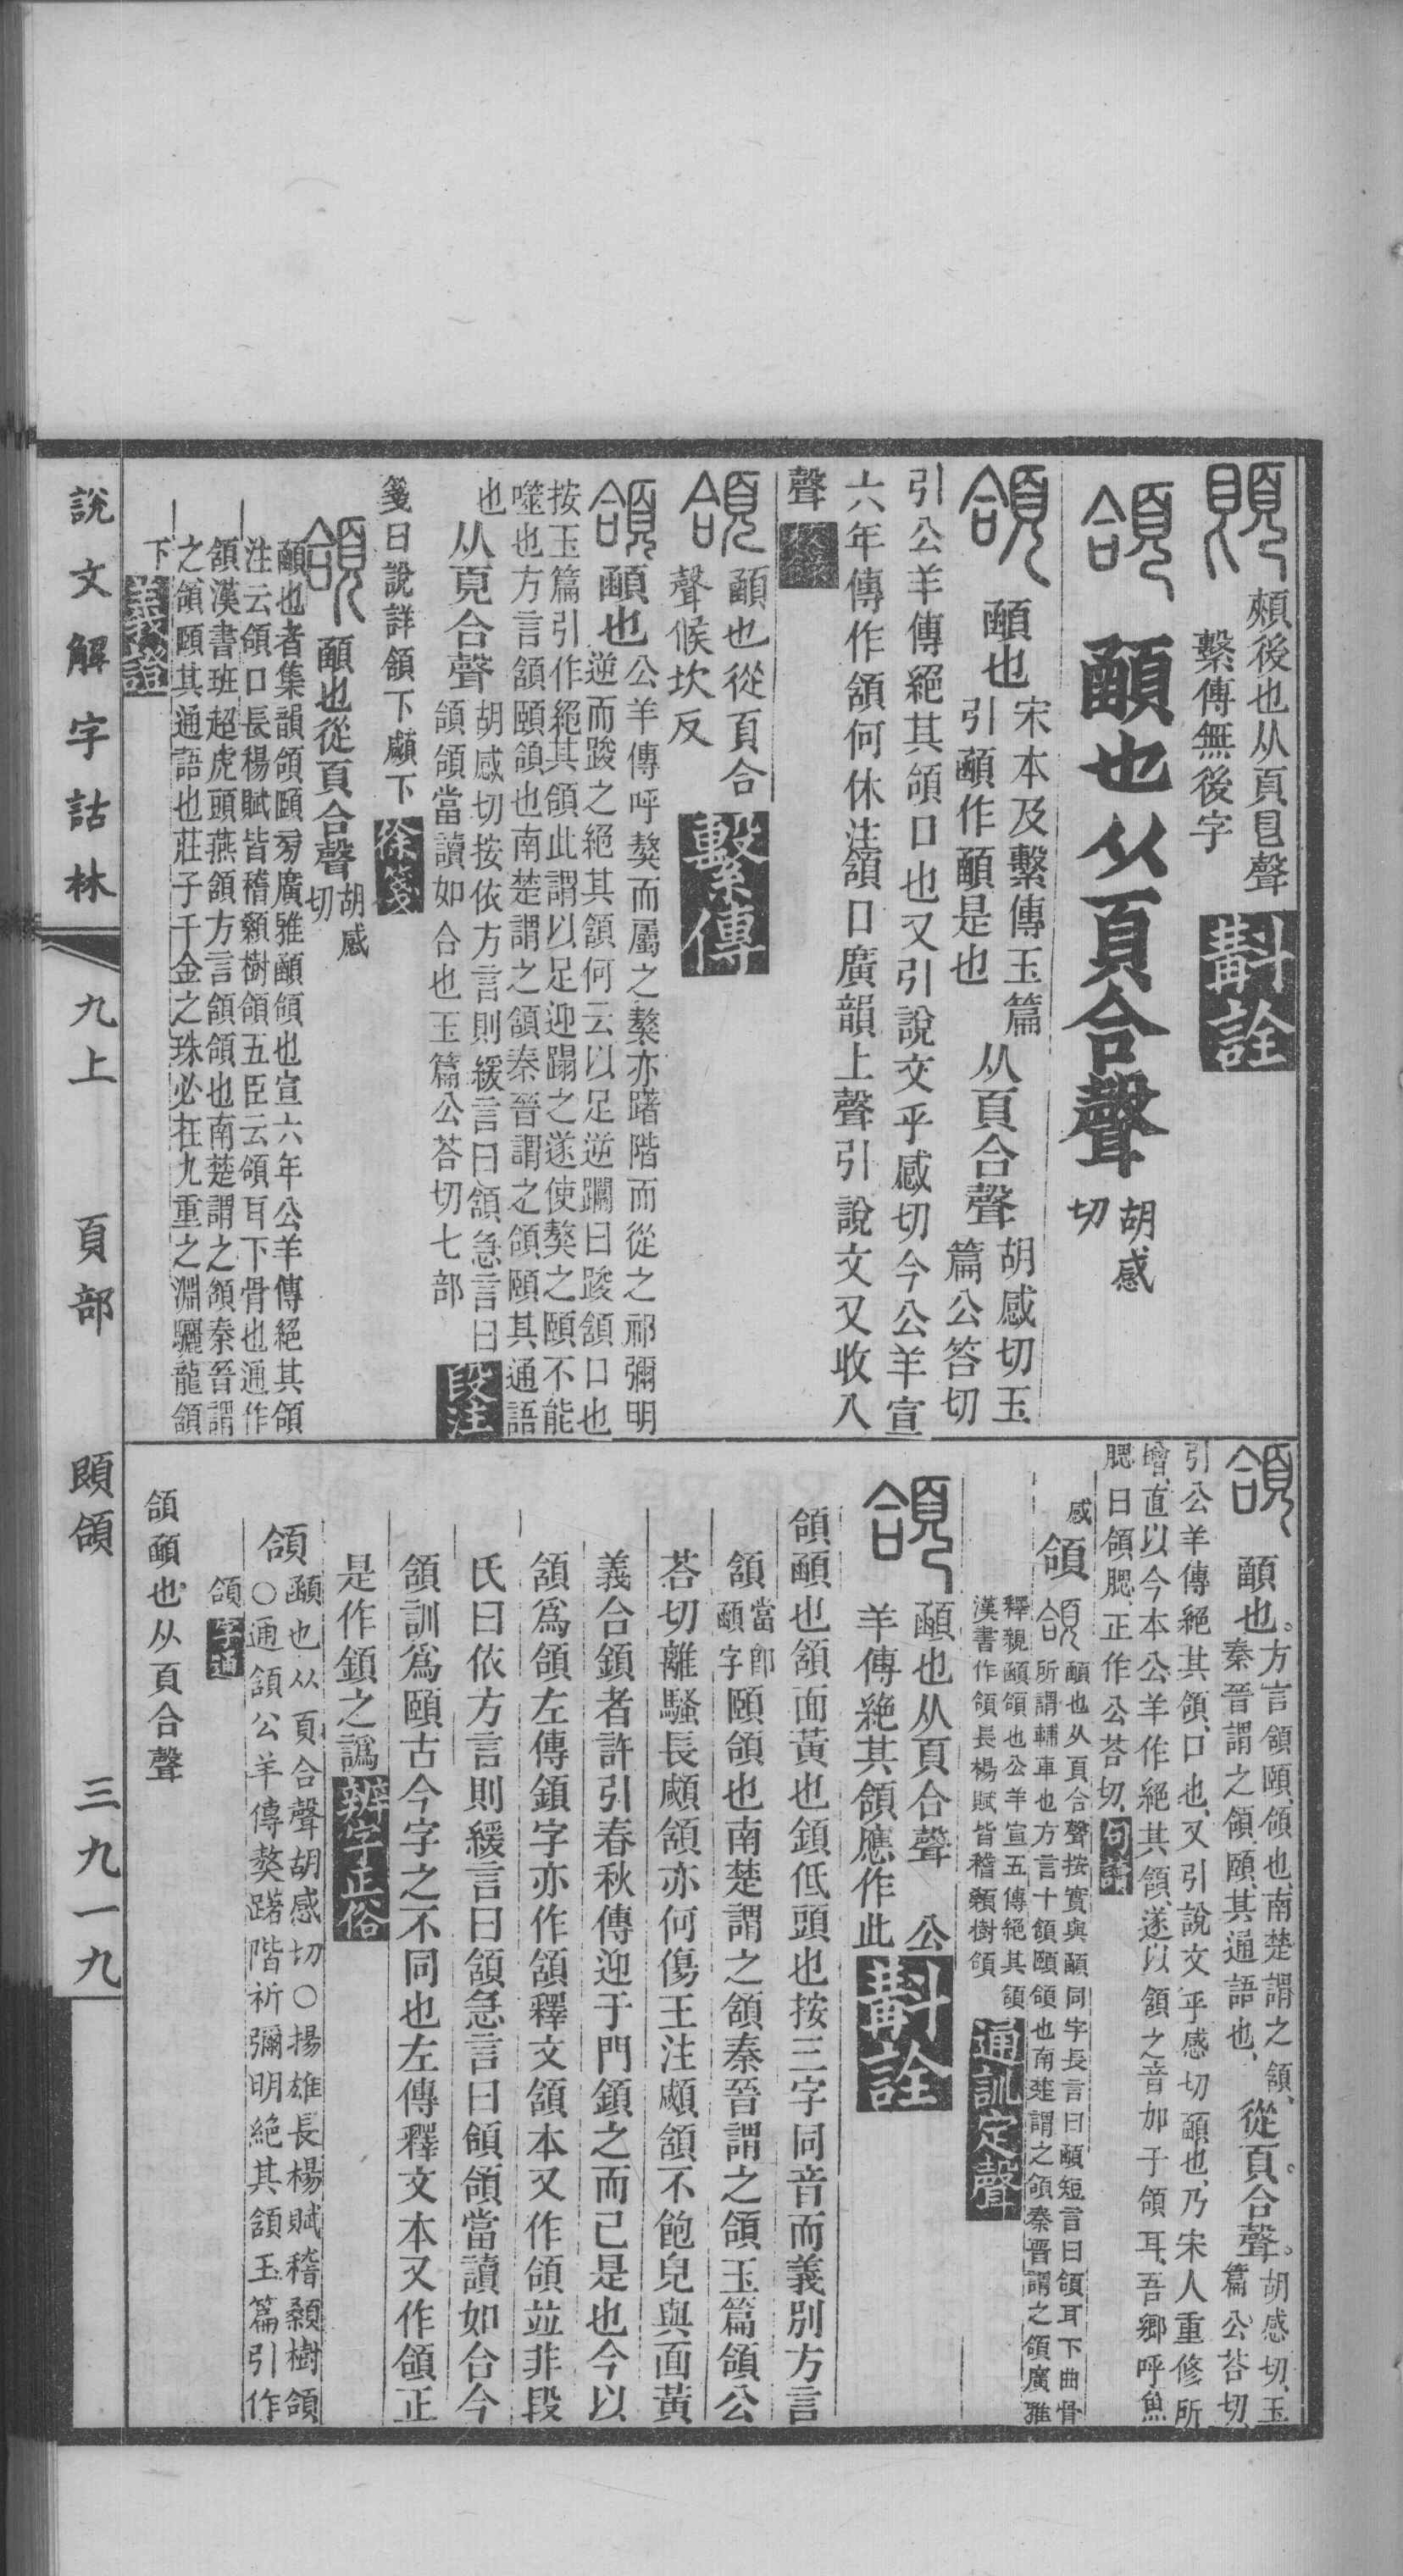 頰後也从頁㫐聲
繫傳無後字
斠詮
頜 顄也从頁合聲 胡感
切
頜 顄也 宋本及繫傳玉篇
引顄作顄是也 从頁合聲 胡感切玉
篇公答切
引公羊傳絕其頜口也又引說文乎感切今公羊宣
六年傳作頷何休注頷口廣韻上聲引說文又收入
聲
頜 顄也從頁合
聲候坎反 繫傳
頜 顄也 公羊傳呼獒而屬之獒亦躇階而從之祁彌明
逆而踆之絕其頷何云以足逆躝曰踆頷口也
按玉篇引作絕其頜此謂以足迎蹋之遂使獒之頤不能
噬也方言頷頤頜也南楚謂之頷秦晉謂之頜頤其通語
也 从頁合聲 胡感切按依方言則緩言曰頷急言曰
頜頜當讀如合也玉篇公荅切七部 段注
箋曰說詳領下顄下 徐箋
頜 顄也從頁合聲 胡感
切
顄也者集韻頜頤旁廣雅顄頜也宣六年公羊傳絕其頜
注云頜口長楊賦皆稽顙樹頜五臣云頜耳下骨也通作
頷漢書班超虎頭燕頷方言頷頜也南楚謂之頷秦晉謂
之頜頤其通語也莊子千金之珠必在九重之淵驪龍頷
下 義證
頜 顄也 方言頷頤頜也南楚謂之頷
秦晉謂之頜頤其通語也 從頁合聲 胡感切玉
篇公荅切
引公羊傳絕其頜口也又引說文乎感切顄也乃宋人重修所
增直以今本公羊作絕其頷遂以頷之音加于頜耳吾鄉呼魚
腮曰頜腮正作公荅切 句讀
頜 顄也从頁合聲按實與顄同字長言曰顄短言曰頜耳下曲骨
所謂輔車也方言十頷頤頜也南楚謂之頷秦晉謂之頜廣雅
釋親顄頜也公羊宣五傳絕其頷
漢書作頜長楊賦皆稽顙樹頜
感
通訓定聲
頜 顄也从頁合聲 公
羊傳絶其頷應作此 斠詮
頜顄也頷面黃也顉低頭也按三字同音而義別方言
頷當卽
顄字頤頜也南楚謂之頷秦晉謂之頜玉篇頜公
荅切離騷長顑頷亦何傷王注顑頷不飽皃與面黃
義合顉者許引春秋傳迎于門顉之而已是也今以
頷爲頜左傳顉字亦作頷釋文頷本又作頜並非段
氏曰依方言則緩言曰頷急言曰頜頜當讀如合今
頷訓爲頤古今字之不同也左傳釋文本又作頜正
是作顉之譌 辨字正俗
頜 顄也从頁合聲胡感切〇揚雄長楊賦稽顙樹頜
〇通頷公羊傳獒躇階祈彌明絕其頷玉篇引作
頜 字通
頜顄也从頁合聲
說文解字詁林 九上 頁部 䫀頜 三九一九